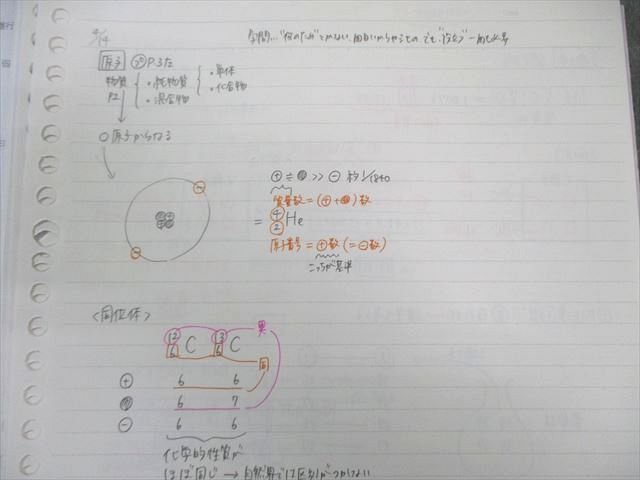 4/14
学問…"何のため"とかない、面白いからやるもの でも"役立つ"
原子 P.32
物質 ・純物質 ・単体
P2 ・混合物 ・化合物
○原子からなる
⊕ ≒ ● >> ⊖ 約1/1840
質量数 = (⊕+●)数
= 4 2 He
原子番号 = ⊕数 (= ⊖数)
こっちが基準
<同位体>
異
12 6 C 13 6 C
同
⊕ 6 6
● 6 7
⊖ 6 6
化学的性質が
ほぼ同じ → 自然界では区別がつかない